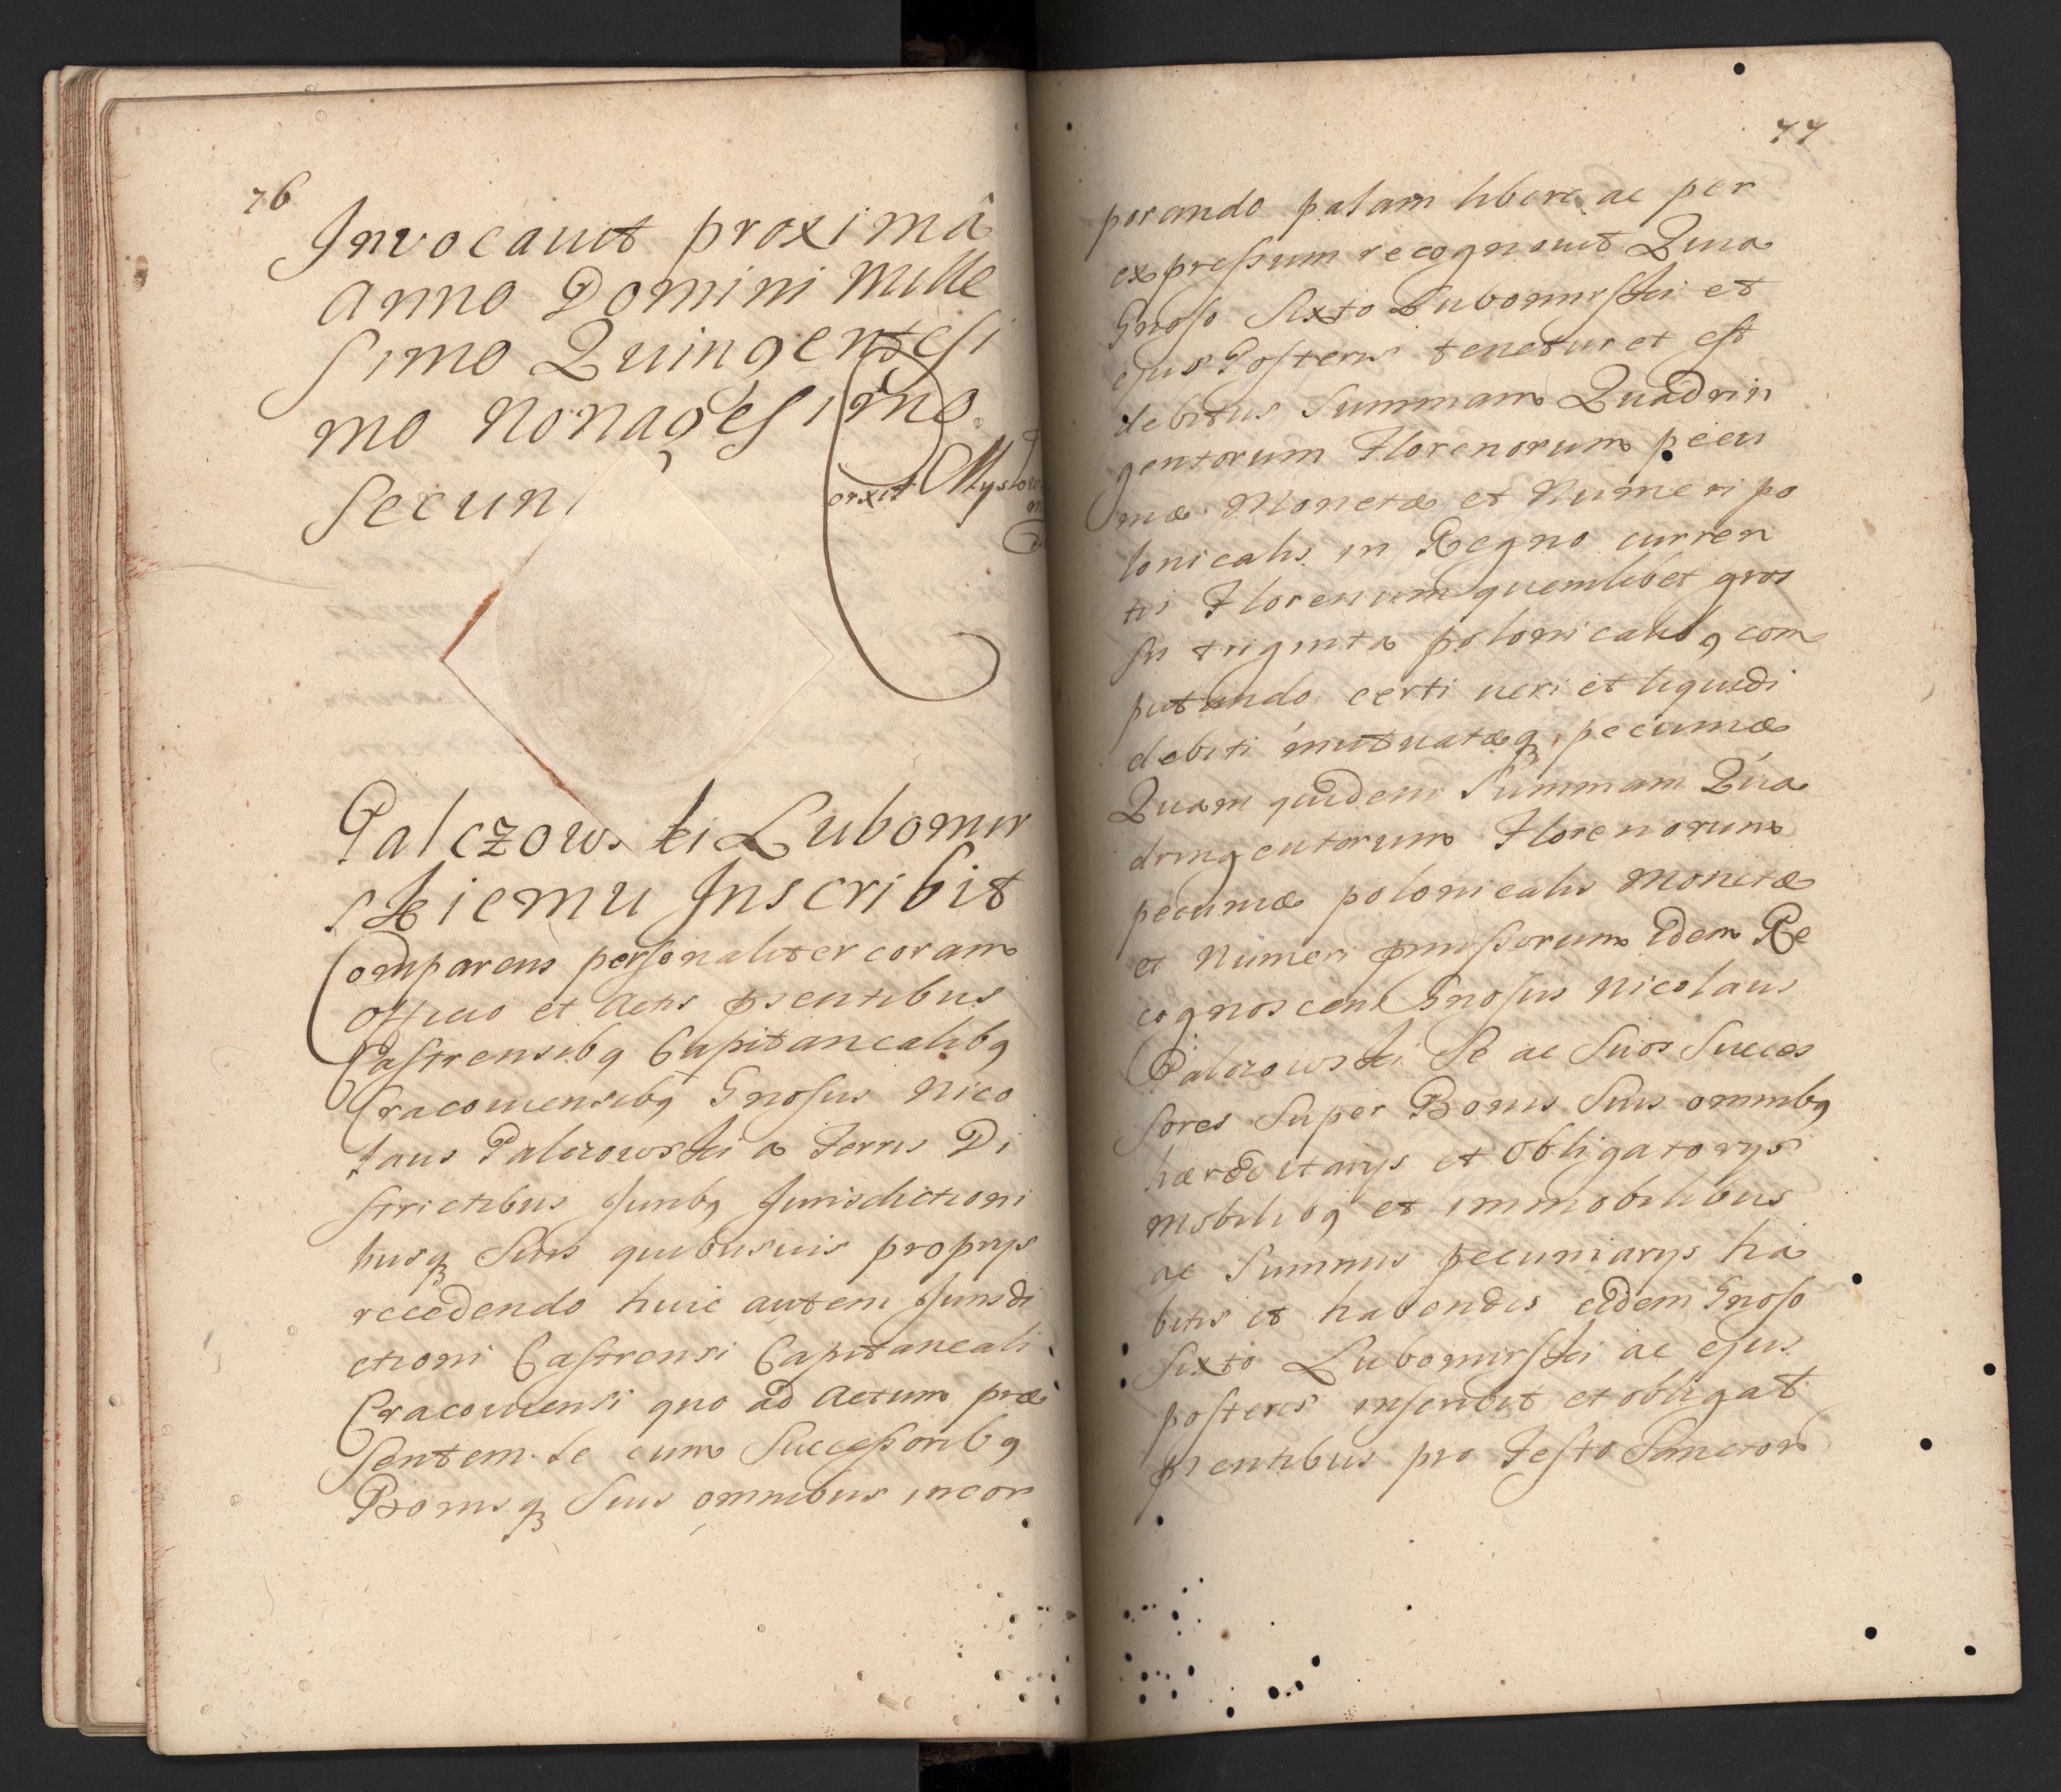 76
Invocauit proximâ
Anno Domini Mille
simo Quingentesi
mo Nonagesimo
Secun
Palczowski Lubomir
skiemu Inscribit
Comparens personaliter coram
Officio et Actis pñsentibus
Castrensibq Capitanealibq
Cracouiensibq Gnosus Nico
laus Palczowski a Terris Di
strictibus Juribq Jurisdictioni
busq Suis quibusuis proprys
recedendo huic autem Jurisdi
ctioni Castrensi Capitaneali
Cracouiensi quo ad Actum præ
sentem se cum Successoribq
Bonisq Suis omnibus incor
77
porando palam libere ac per
expressum recognouit Quia
Gnoso Sixto Lubomirski et
ejus Posteris tenetur et est
debitus Summam Quadrin
gentorum Florenorum pecu
niæ Monetæ et Numeri po
lonicalis in Regno curren
tis Florenum quemlibet gros
sis triginta polonicalibq com
putando certi ueri et liquidi
debiti mutuatæq pecuniæ
Quam quidem Summam Qua
dringentorum Florenorum
pecuniæ polonicalis Monetæ
et Numeri pmissorum idem Re
cognoscens Gnosus Nicolaus
Palczowski Se ac Suos Succes
sores Super Bonis Suis omnibq
hæreditarys et obligatorys
mobilibq et immobilibus
ac Summis pecuniarys ha
bitis et habendis eidem Gnoso
Sixto Lubomirski ac ejus
posteris inscribit et obligat
pñsentibus pro Festo Sanctor